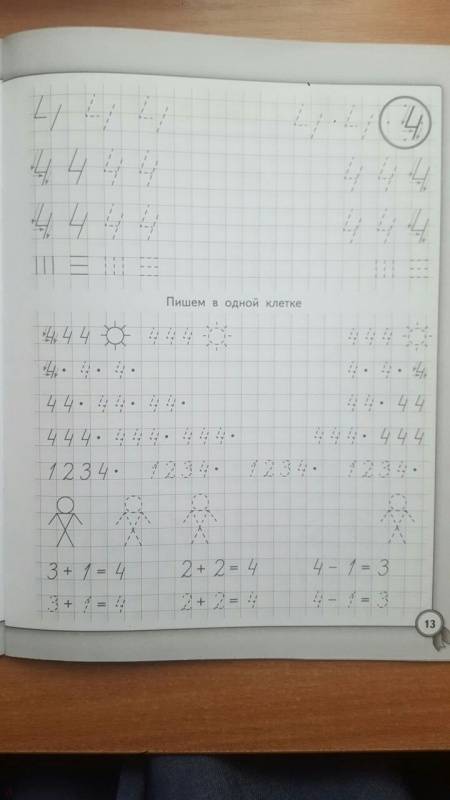 4 4 4 4 · 4 · 4
4 4 4 4 4 4 4
4 4 4 4 4 4 4
Пишем в одной клетке
4 4 4 4 4 4 4 4 4
4 · 4 · 4 · 4 · 4 · 4
44 · 44 · 44 · 44 · 44
444 · 444 · 444 · 444 · 444
1234 · 1234 · 1234 · 1234 ·
3 + 1 = 4 2 + 2 = 4 4 − 1 = 3
3 + 1 = 4 2 + 2 = 4 4 − 1 = 3
13